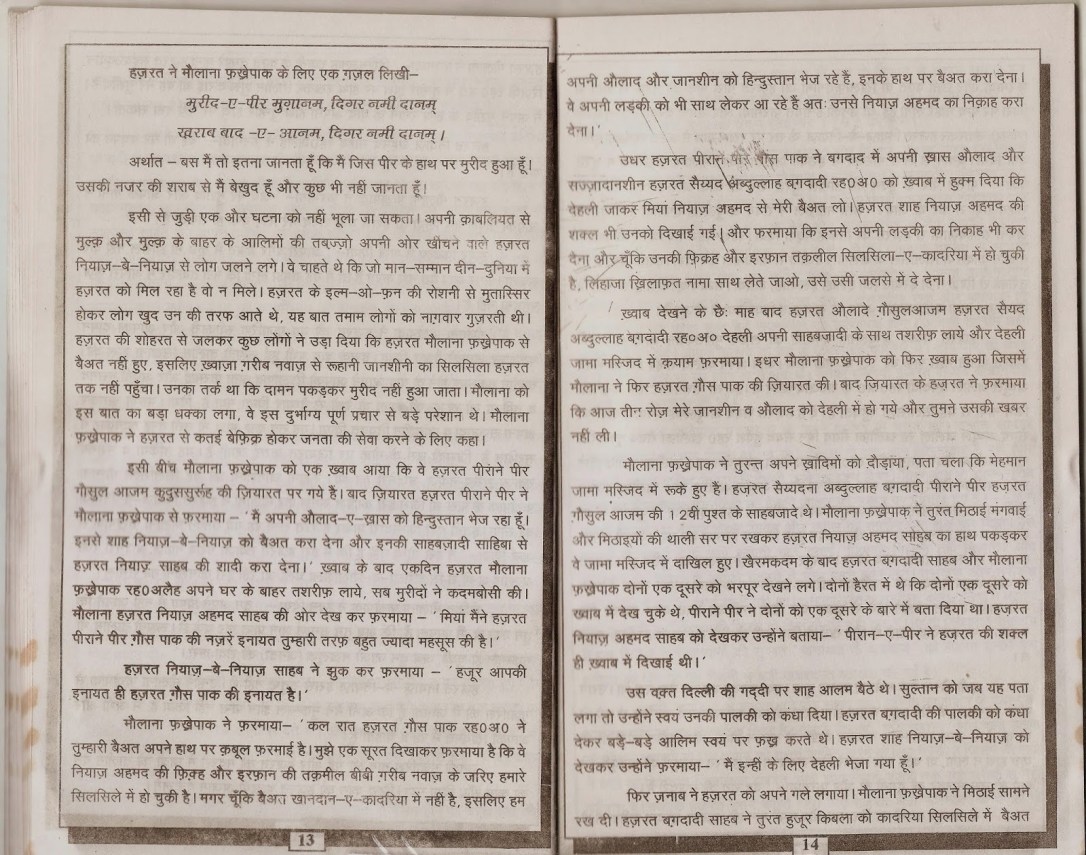 हज़रत ने मौलाना फ़ख्रेपाक के लिए एक ग़ज़ल लिखी–
मुरीद–ए–पीर मुग़ानम, दिगर नमी दानम्
ख़राब बाद –ए– आनम, दिगर नमी दानम्।
अर्थात – बस मैं तो इतना जानता हूँ कि मैं जिस पीर के हाथ पर मुरीद हुआ हूँ।
उसकी नजर की शराब से मैं बेखुद हूँ और कुछ भी नहीं जानता हूँ!
इसी से जुड़ी एक और घटना को नहीं भूला जा सकता। अपनी क़ाबलियत से
मुल्क़ और मुल्क़ के बाहर के आलिमों की तबज़्ज़ो अपनी ओर खींचने वाले हज़रत
नियाज़–बे–नियाज़ से लोग जलने लगे। वे चाहते थे कि जो मान–सम्मान दीन–दुनिया में
हज़रत को मिल रहा है वो न मिले। हज़रत के इल्म–ओ–फ़न की रोशनी से मुतास्सिर
होकर लोग खुद उन की तरफ आते थे, यह बात तमाम लोगों को नाग़वार गुज़रती थी।
हज़रत की शोहरत से जलकर कुछ लोगों ने उड़ा दिया कि हज़रत मौलाना फ़ख्रेपाक से
बैअत नहीं हुए, इसलिए ख्वाज़ा ग़रीब नवाज़ से रूहानी जानशीनी का सिलसिला हज़रत
तक नहीं पहुँचा। उनका तर्क था कि दामन पकड़कर मुरीद नहीं हुआ जाता। मौलाना को
इस बात का बड़ा धक्का लगा, वे इस दुर्भाग्य पूर्ण प्रचार से बड़े परेशान थे। मौलाना
फ़ख्रेपाक ने हज़रत से कतई बेफ़िक्र होकर जनता की सेवा करने के लिए कहा।
इसी बीच मौलाना फ़ख्रेपाक को एक ख्वाब आया कि वे हज़रत पीराने पीर
गौसुल आजम कुदुससुर्रूह की ज़ियारत पर गये हैं। बाद ज़ियारत हज़रत पीराने पीर ने
मौलाना फ़ख्रेपाक से फ़रमाया – 'मैं अपनी औलाद–ए–ख़ास को हिन्दुस्तान भेज रहा हूँ।
इनसे शाह नियाज़–बे–नियाज़ को बैअत करा देना और इनकी साहबज़ादी साहिबा से
हज़रत नियाज़ साहब की शादी करा देना।' ख़्वाब के बाद एकदिन हज़रत मौलाना
फ़ख्रेपाक रह0अलैह अपने घर के बाहर तशरीफ़ लाये, सब मुरीदों ने कदमबोसी की।
मौलाना हज़रत नियाज़ अहमद साहब की ओर देख कर फ़रमाया – 'मियां मैंने हज़रत
पीराने पीर ग़ौस पाक की नज़रें इनायत तुम्हारी तरफ़ बहुत ज्यादा महसूस की है।'
हज़रत नियाज़–बे–नियाज़ साहब ने झुक कर फ़रमाया – 'हजूर आपकी
इनायत ही हज़रत ग़ौस पाक की इनायत है।'
मौलाना फ़ख्रेपाक ने फ़रमाया– 'कल रात हज़रत ग़ौस पाक रह0अ0 ने
तुम्हारी बैअत अपने हाथ पर क़बूल फ़रमाई है। मुझे एक सूरत दिखाकर फ़रमाया है कि वे
नियाज़ अहमद की फ़िक़्ह और इरफ़ान की तक़मील बीबी ग़रीब नवाज़ के जरिए हमारे
सिलसिले में हो चुकी है। मगर चूँकि बैअत खानदान–ए–कादरिया में नहीं है, इसलिए हम
13
अपनी औलाद और जानशीन को हिन्दुस्तान भेज रहे हैं, इनके हाथ पर बैअत करा देना।
वे अपनी लड़की को भी साथ लेकर आ रहे हैं अतः उनसे नियाज़ अहमद का निक़ाह करा
देना।'
उधर हज़रत पीराने पीर ग़ौस पाक ने बगदाद में अपनी ख़ास औलाद और
सज्ज़ादानशीन हज़रत सैय्यद अब्दुल्लाह बग़दादी रह0अ0 को ख़्वाब में हुक्म दिया कि
देहली जाकर मियां नियाज़ अहमद से मेरी बैअत लो। हज़रत शाह नियाज़ अहमद की
शक्ल भी उनको दिखाई गई। और फरमाया कि इनसे अपनी लड़की का निकाह भी कर
देना और चूँकि उनकी फ़िक्रह और इरफ़ान तक़लील सिलसिला–ए–कादरिया में हो चुकी
है, लिहाजा ख़िलाफ़त नामा साथ लेते जाओ, उसे उसी जलसे में दे देना।
ख़्वाब देखने के छैः माह बाद हज़रत औलादे ग़ौसुलआजम हज़रत सैयद
अब्दुल्लाह बग़दादी रह०अ० देहली अपनी साहबज़ादी के साथ तशरीफ़ लाये और देहली
जामा मस्जिद में क़याम फ़रमाया। इधर मौलाना फ़ख्रेपाक को फिर ख़्वाब हुआ जिसमें
मौलाना ने फिर हज़रत ग़ौस पाक की ज़ियारत की। बाद ज़ियारत के हज़रत ने फ़रमाया
कि आज तीन रोज़ मेरे जानशीन व औलाद को देहली में हो गये और तुमने उसकी खबर
नहीं ली।
मौलाना फ़ख्रेपाक ने तुरन्त अपने ख़ादिमों को दौड़ाया, पता चला कि मेहमान
जामा मस्जिद में रूके हुए हैं। हज़रत सैय्यदना अब्दुल्लाह बग़दादी पीराने पीर हज़रत
ग़ौसुल आजम की 12वीं पुश्त के साहबजादे थे। मौलाना फ़ख्रेपाक़ ने तुरंत मिठाई मंगवाई
और मिठाइयों की थाली सर पर रखकर हज़रत नियाज़ अहमद साहब का हाथ पकड़कर
वे जामा मस्जिद में दाखिल हुए। खैरमकदम के बाद हज़रत बग़दादी साहब और मौलाना
फ़ख्रेपाक दोनों एक दूसरे को भरपूर देखने लगे। दोनों हैरत में थे कि दोनों एक दूसरे को
ख्वाब में देख चुके थे, पीराने पीर ने दोनों को एक दूसरे के बारे में बता दिया था। हज़रत
नियाज़ अहमद साहब को देखकर उन्होंने बताया– 'पीरान–ए–पीर ने हज़रत की शक्ल
ही ख़्वाब में दिखाई थी।'
उस वक़्त दिल्ली की गद्दी पर शाह आलम बैठे थे। सुल्तान को जब यह पता
लगा तो उन्होंने स्वयं उनकी पालकी को कंधा दिया। हज़रत बग़दादी की पालकी को कंधा
देकर बड़े–बड़े आलिम स्वयं पर फ़ख्र करते थे। हज़रत शाह नियाज़–बे–नियाज़ को
देखकर उन्होंने फ़रमाया– 'मैं इन्हीं के लिए देहली भेजा गया हूँ।'
फिर ज़नाब ने हज़रत को अपने गले लगाया। मौलाना फ़ख्रेपाक ने मिठाई सामने
रख दी। हज़रत बग़दादी साहब ने तुरंत हुजूर किबला को कादरिया सिलसिले में बैअत
14